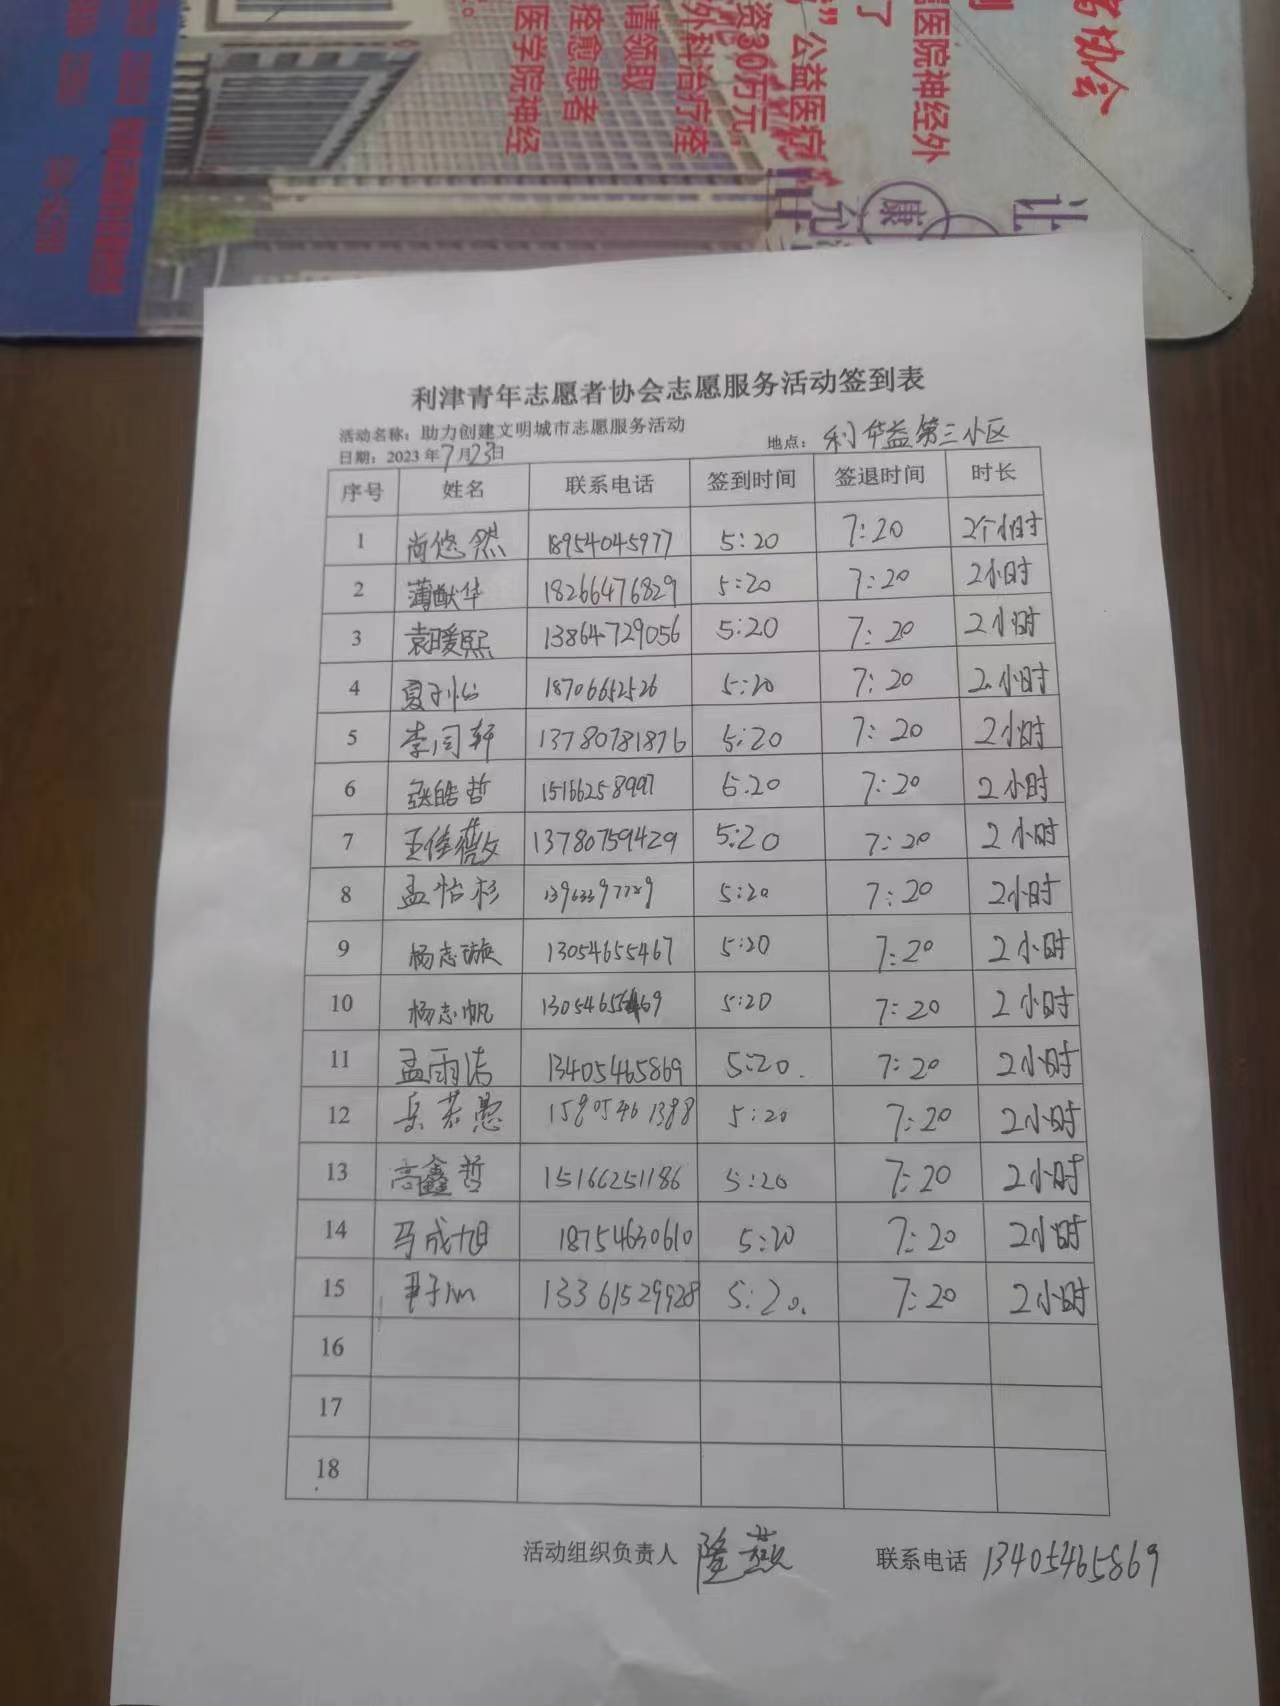 者协会
医院神经外
了
”公益医疗
资30万元，
外科治疗痉
请领取
痊愈患者
医学院神经
康
让
利津青年志愿者协会志愿服务活动签到表
活动名称：助力创建文明城市志愿服务活动
地点：利华益第三小区
日期：2023年7月23日
序号 姓名 联系电话 签到时间 签退时间 时长
1 尚悠然 18954045977 5:20 7:20 2个小时
2 薄猷华 18266476829 5:20 7:20 2小时
3 袁暖熙 13864729056 5:20 7:20 2小时
4 18706652526 5:20 7:20 2小时
5 李同轩 13780781876 5:20 7:20 2小时
6 张皓哲 15166258997 5.20 7:20 2小时
7 王佳薇 13780759429 5:20 7:20 2小时
8 孟怡杉 13963397729 5:20 7:20 2小时
9 杨志璇 13054655467 5:20 7:20 2小时
10 杨志帆 5:20 7:20 2小时
11 孟雨涛 13405465869 5:20. 7:20 2小时
12 岳若愚 15905461388 5:20 7:20 2小时
13 高鑫哲 15166251186 5:20 7:20 2小时
14 马成旭 18754630610 5:20 7:20 2小时
15 13361529928 5:20. 7:20 2小时
16
17
18
活动组织负责人 隆燕 联系电话 13405465869